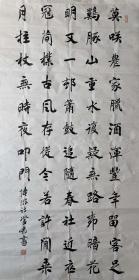 莫咲農家臘酒渾豐年留客足
鷄豚山重水複疑無路柳暗花
明又一邨簫鼓追隨春社近衣
冠簡樸古風存從今若許閑乘
月拄杖無時夜叩門 陸游詩